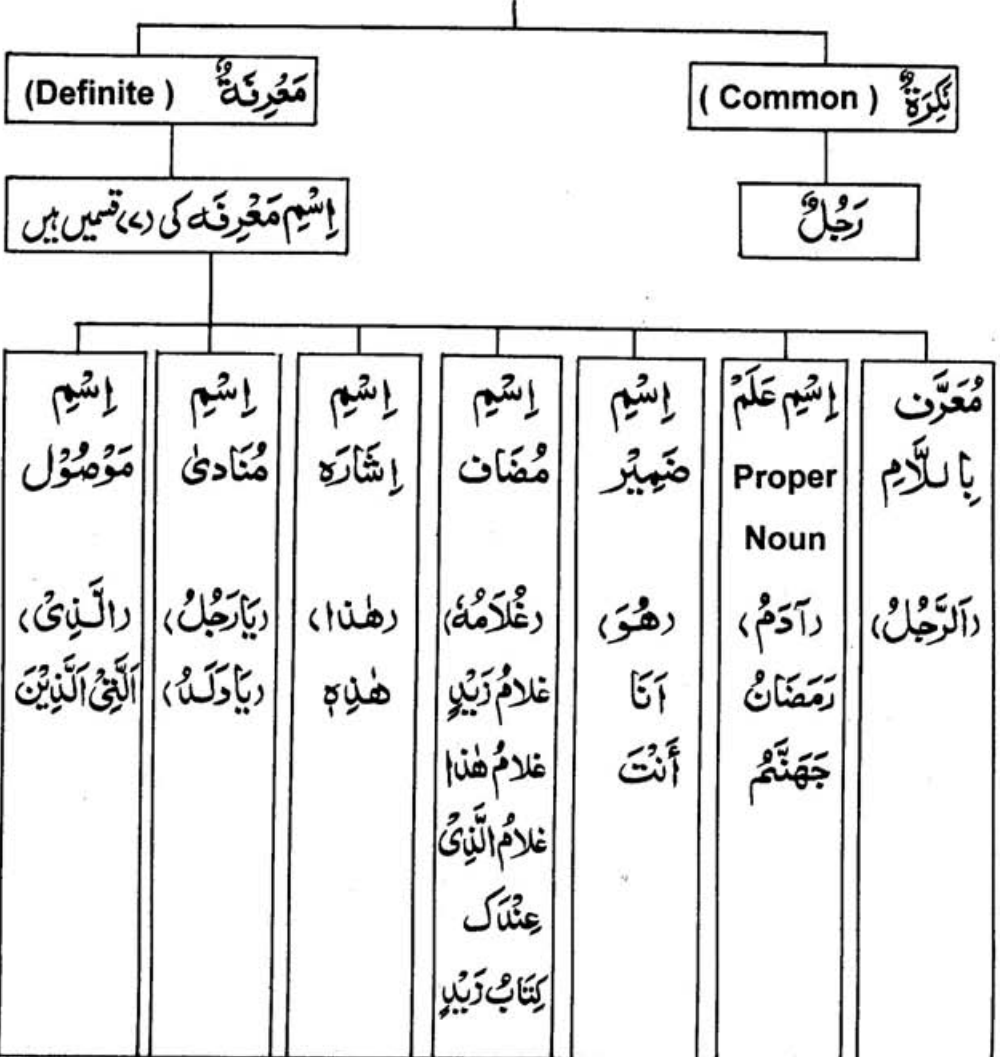 نَكِرَةٌ ( Common )
مَعْرِفَةٌ (Definite )
رَجُلٌ
اِسْمِ مَعْرِفَہ کی (۷) قسمیں ہیں
مُعَرَّف
بِاللَّامِ
(اَلرَّجُلُ)
اِسْمِ عَلَمْ
Proper
Noun
(آدَمُ)
رَمَضَانُ
جَهَنَّمُ
اِسْمِ
ضَمِیْر
(هُوَ)
اَنَا
أَنْتَ
اِسْمِ
مُضَاف
(غُلَامُهٗ)
غلامُ زَيْدٍ
غلامُ هٰذا
غلامُ الَّذِیْ
عِنْدَک
كِتَابُ زَيْدٍ
اِسْمِ
اِشَارَہ
(هٰذا)
هٰذِهٖ
اِسْمِ
مُنَادیٰ
(يَارَجُلُ)
(يَا وَلَدُ)
اِسْمِ
مَوْصُوْل
(الَّذِیْ)
اَلَّتِیْ اَلَّذِيْنَ